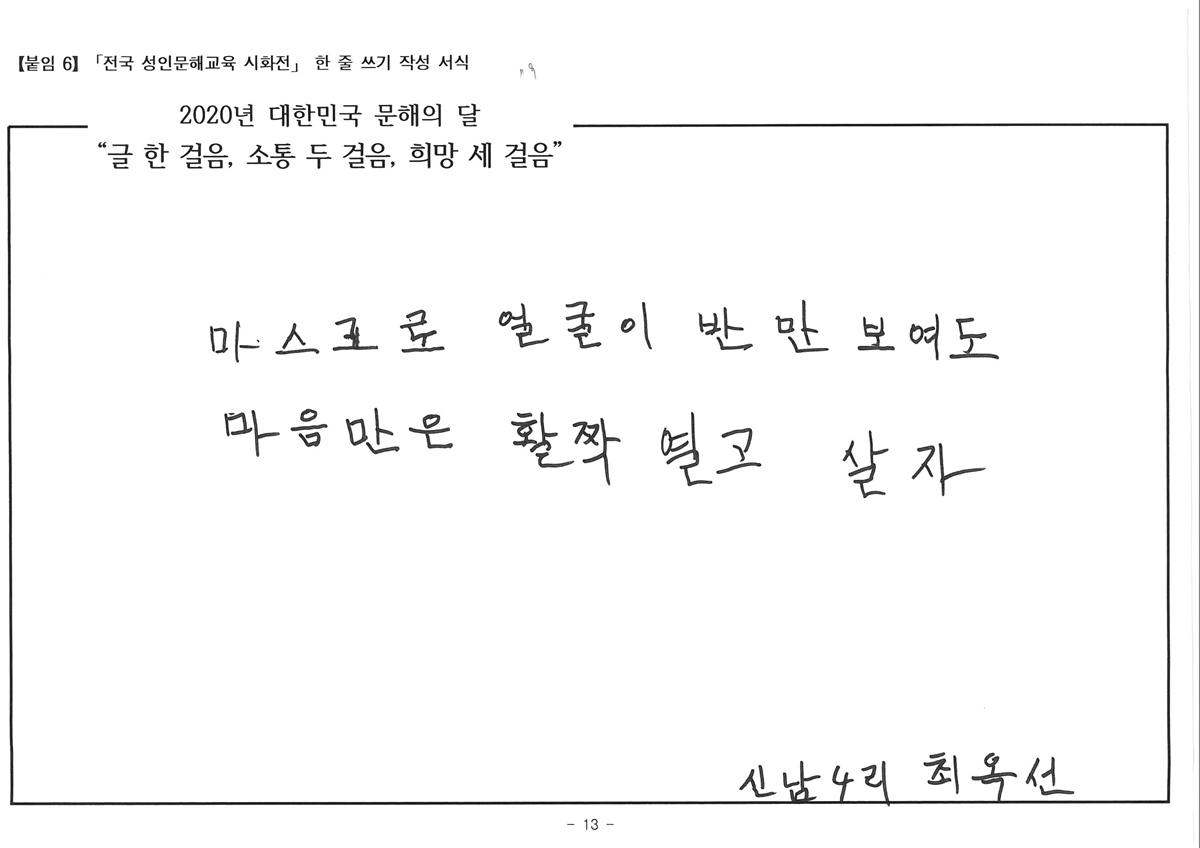 【붙임 6】 「전국 성인문해교육 시화전」 한 줄 쓰기 작성 서식
2020년 대한민국 문해의 달
“글 한 걸음, 소통 두 걸음, 희망 세 걸음”
마스크로 얼굴이 반만 보여도
마음만은 활짝 열고 살자
신남4리 최옥선
- 13 -